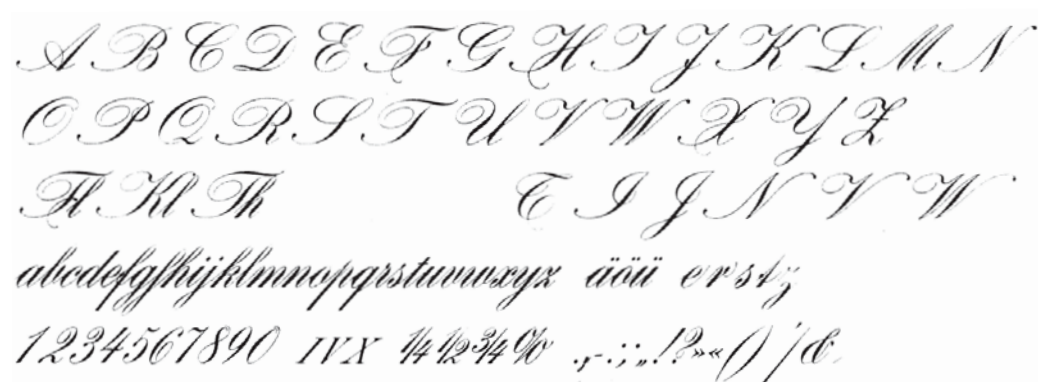 A B C D E F G H I J K L M N
O P Q R S T U V W X Y Z
Fl Kl Th T I J N V W
abcdefgfhijklmnopqrstuvwxyz äöü erstz
1234567890 IVX ¼½¾% .,-:;„!?»«()'/&.